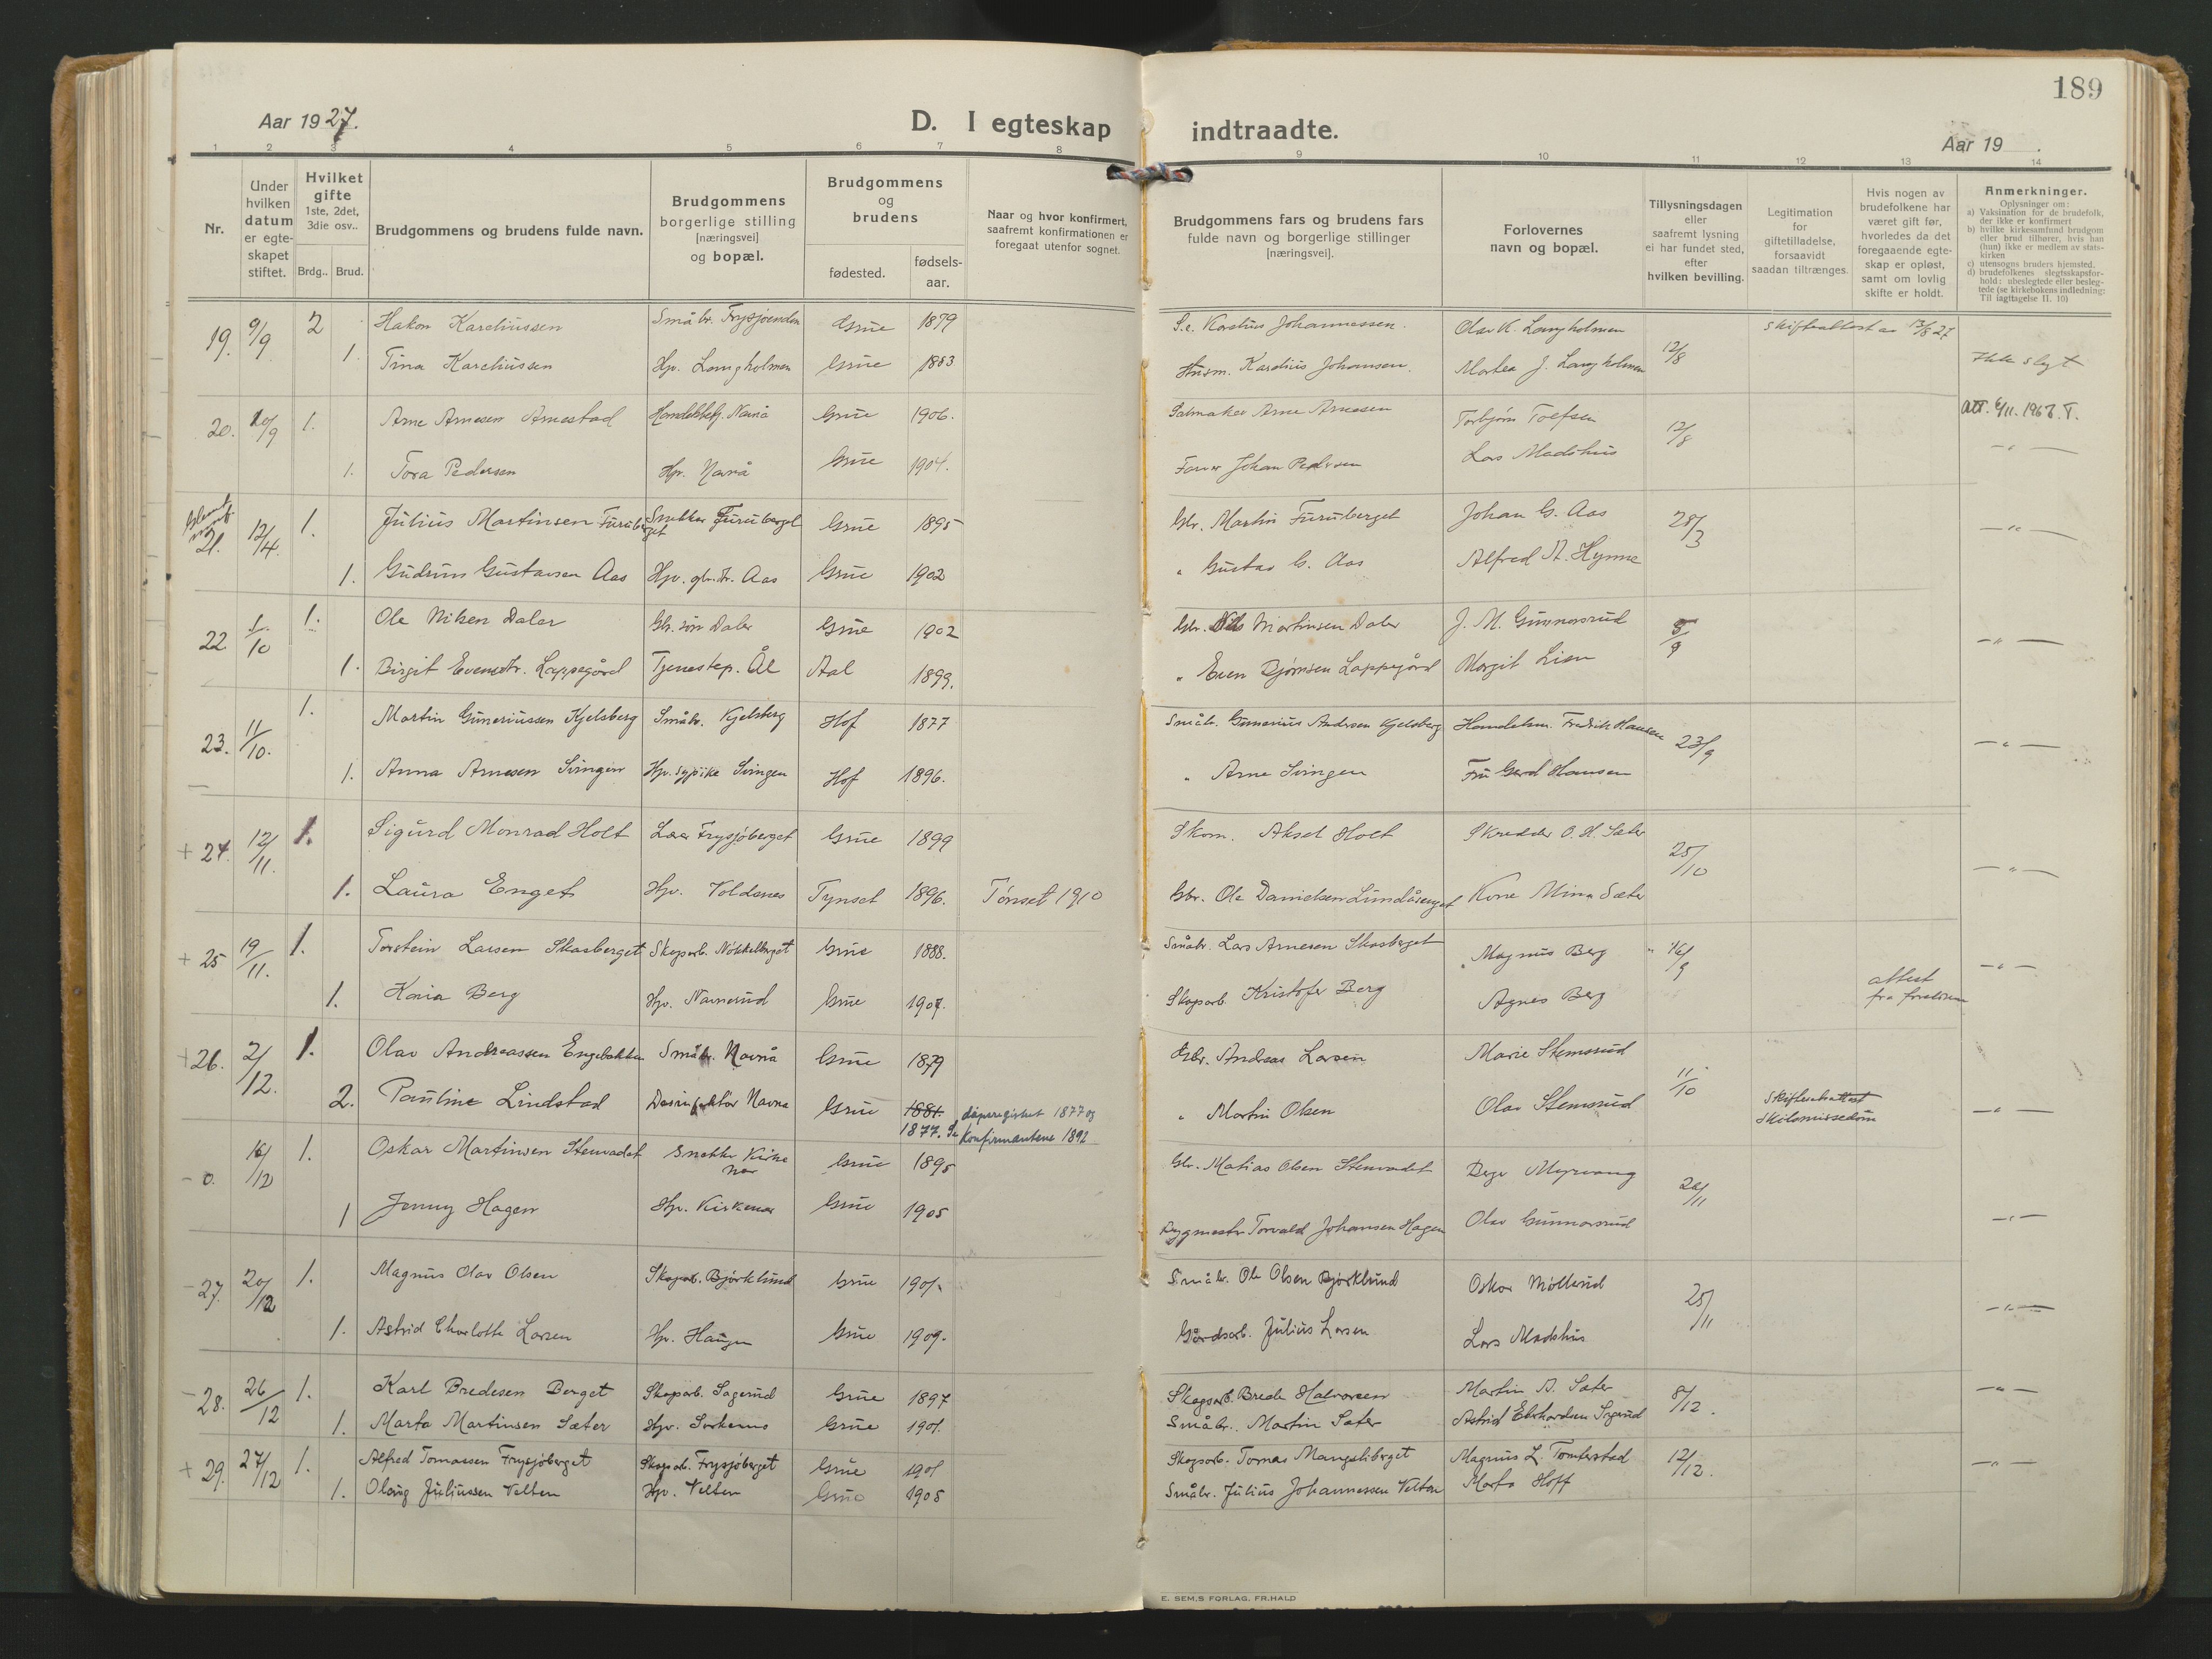 189
Aar 1927.
D. I egteskap indtraadte.
Aar 19 .
1 2 3 4 5 6 7 8 9 10 11 12 13 14
Nr.
Under hvilken datum er egteskapet stiftet.
Hvilket gifte 1ste, 2det, 3die osv..
Brdg.. Brud.
Brudgommens og brudens fulde navn.
Brudgommens borgerlige stilling [næringsvei] og bopæl.
Brudgommens og brudens
fødested.
fødsels-aar.
Naar og hvor konfirmert, saafremt konfirmationen er foregaat utenfor sognet.
Brudgommens fars og brudens fars fulde navn og borgerlige stillinger [næringsvei].
Forlovernes navn og bopæl.
Tillysningsdagen eller saafremt lysning ei har fundet sted, efter hvilken bevilling.
Legitimation for giftetilladelse, forsaavidt saadan tiltrænges.
Hvis nogen av brudefolkene har været gift før, hvorledes da det foregaaende egteskap er opløst, samt om lovlig skifte er holdt.
Anmerkninger.
Oplysninger om:
a) Vaksination for de brudefolk, der ikke er konfirmert
b) hvilke kirkesamfund brudgom eller brud tilhører, hvis han (hun) ikke er medlem av statskirken
c) utensogns bruders hjemsted.
d) brudefolkenes slegtsskapsforhold: ubeslegtede eller beslegtede (se kirkebokens indledning: Til iagttagelse II. 10)
19. 9/9 2 Hakon Kareliussen Småbr. Frysjøenden Grue 1879 S.e. Karelius Johannessen. Olav K. Langholmen 12/8 Skifteattest av 13/8 27
1. Tina Kareliussen Hp. Langholmen Grue 1883 Husm. Karelius Johansen. Martea J. Langholmen Ikke slegt
20. 10/9 1. Arne Arnesen Arnestad Handelsbetj. Namnå Grue 1906. Salmaker Arne Arnesen Torbjørn Tolfsen 12/8 Att. 6/11. 1967. T.
1. Tora Pedersen Hp. Namnå Grue 1904. Farver Johan Pedersen Lars Madshus — " —
21. 12/4. 1. Julius Martinsen Furuberget Snekker Furuberget Grue 1895 Gbr. Martin Furuberget Johan G. Aas 28/3 — " —
1. Gudrun Gustavsen Aas Hp. gbr.dr. Aas Grue 1902 " Gustav G. Aas Alfred A. Hynne
22 1/10 1. Ole Nilsen Daler Gb. søn Daler Grue 1902 Gbr. Nils Martinsen Daler J. M. Gunnarsrud 5/9 — " —
1. Birgit Evensdtr. Lappegård Tjenestep. Ål Aal 1899. " Even Bjørnsen Lappegård Margit Lien
23. 11/10. 1. Martin Guneriussen Kjelsberg Småbr. Kjelsberg Hof 1877 Småbr. Gunerius Andersen Kjelsberg Handelsm. Fredrik Hansen 23/9 — " —
1. Anna Arnesen Svingen Hp. sypike Svingen Hof 1896. " Arne Svingen Fru Gerd Hansen
+ 24. 12/11. 1. Sigurd Monrad Holt Lærer Frysjøberget Grue 1899 Skom. Aksel Holt Skredder O. H. Sæter 25/10 — " —
1. Laura Enget Hp. Voldenes Tynset 1896. Tønset 1910 Gbr. Ole Danielsen Lundåsenget Kone Mina Sæter
+ 25 19/11. 1. Torstein Larsen Skasberget Skogsarb. Nøkkelberget Grue 1888. Småbr. Lars Arnesen Skasberget " Magnus Berg 16/9 — " —
1. Karia Berg Hp. Namnerud Grue 1907. Skogsarb. Kristofer Berg Agnes Berg attest fra
+ 26. 2/12. 1. Olav Andreassen Engebakken Småbr. Namnå Grue 1879 Gbr. Andreas Larsen Marie Stemsrud 11/10
2. Pauline Lindstad Desinfektør Namnå Grue 1881. 1877. Se dåpsregistret 1877 og konfirmantene 1892 " Martin Olsen Olav Stemsrud Skilsmissedom — " —
- 0. 16/12 1. Oskar Martinsen Stenvadet Snekker Kirkenær Grue 1895 Gbr. Matias Olsen Stenvadet Berge Myrvang 20/11
1 Jenny Hagen Hp. Kirkenær Grue 1905 Bygmestr. Torvald Johansen Hagen Olav Gunnarsrud — " —
- 27. 20/12 1. Magnus Olav Olsen Skogsarb. Bjørklund Grue 1901. Småbr. Ole Olsen Bjørklund Oskar Møllerud 25/11 — " —
1. Astrid Charlotte Larsen Hp. Haugen Grue 1909. Gårdsarb. Julius Larsen Lars Madshus
- 28. 26/12 1. Karl Bredesen Berget Skogsarb. Sagerud Grue 1897 Skogsarb. Brede Halvorsen Martin A. Sæter 8/12. — " —
1. Marta Martinsen Sæter Hp. Sorkerns Grue 1901. Småbr. Martin Sæter Astrid Ebrhardsen Sagerud
+ 29. 27/12 1. Alfred Tomassen Frysjøberget Skogsarb. Frysjøberget Grue 1901 Skogsarb. Tomas Mangsliberget Magnus L. Tomterstad 12/12. — " —
1. Olaug Juliussen Velten Hp. Velten Grue 1905 Småbr. Julius Johannessen Velten Marta Hoff
E. SEM,S FORLAG, FR.HALD